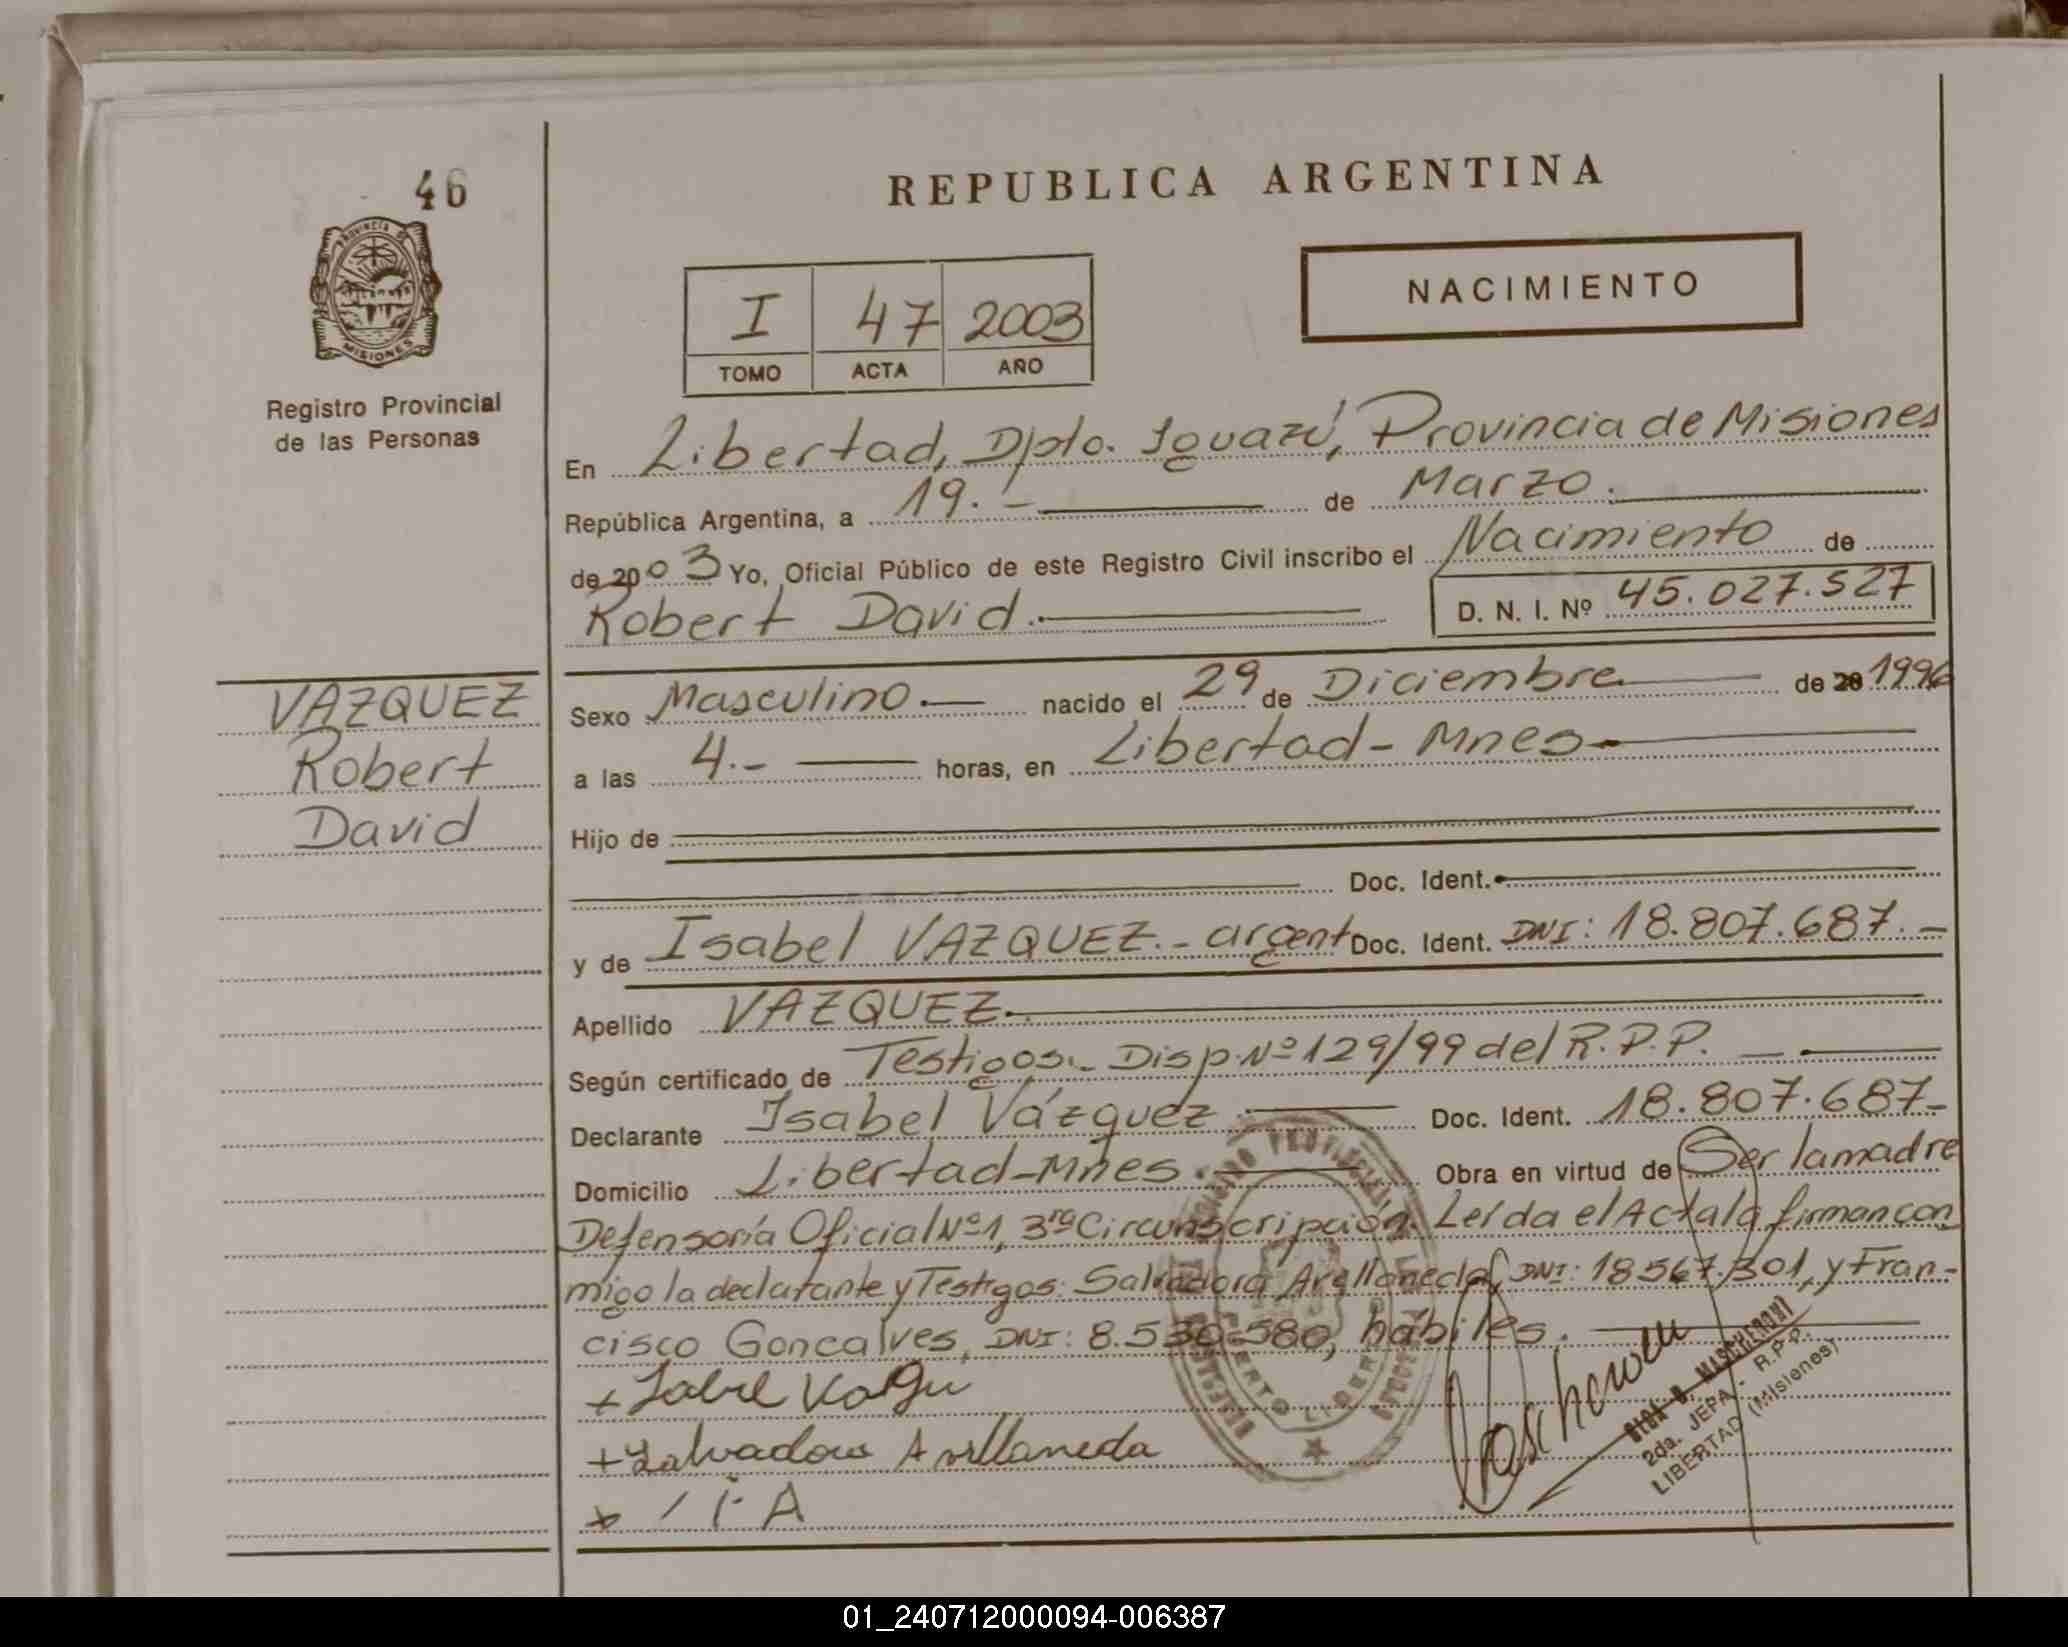 46
REPUBLICA ARGENTINA
NACIMIENTO
I 47 2003
TOMO ACTA AÑO
PROVINCIA DE
MISIONES
Registro Provincial
de las Personas
En Libertad, Dpto. Iguazú, Provincia de Misiones
República Argentina, a 19.- de Marzo.
de 2003 Yo, Oficial Público de este Registro Civil inscribo el Nacimiento de
Robert David.
D. N. I. Nº 45.027.527
VAZQUEZ
Robert
David
Sexo Masculino.- nacido el 29 de Diciembre de 20 1996
a las 4.- horas, en Libertad - Mnes
Hijo de
Doc. Ident.
y de Isabel VAZQUEZ.- argent Doc. Ident. DNI: 18.807.687.-
Apellido VAZQUEZ.
Según certificado de Testigos.- Disp. Nº 129/99 del R.P.P.
Declarante Isabel Vázquez Doc. Ident. 18.807.687-
Domicilio Libertad-Mnes. Obra en virtud de Ser la madre
Defensoría Oficial Nº1, 3ra Circunscripción. Leída el Acta la firman con
migo la declarante y Testigos: Salvadora Arellaneda, DNI: 18567.301, y Fran-
cisco Goncalves, DNI: 8.530.580, hábiles.
+ Isabel
+ Salvadora Arellaneda
MASCHERONI
2da. JEPA - R.P.P.
LIBERTAD (Misiones)
01_240712000094-006387